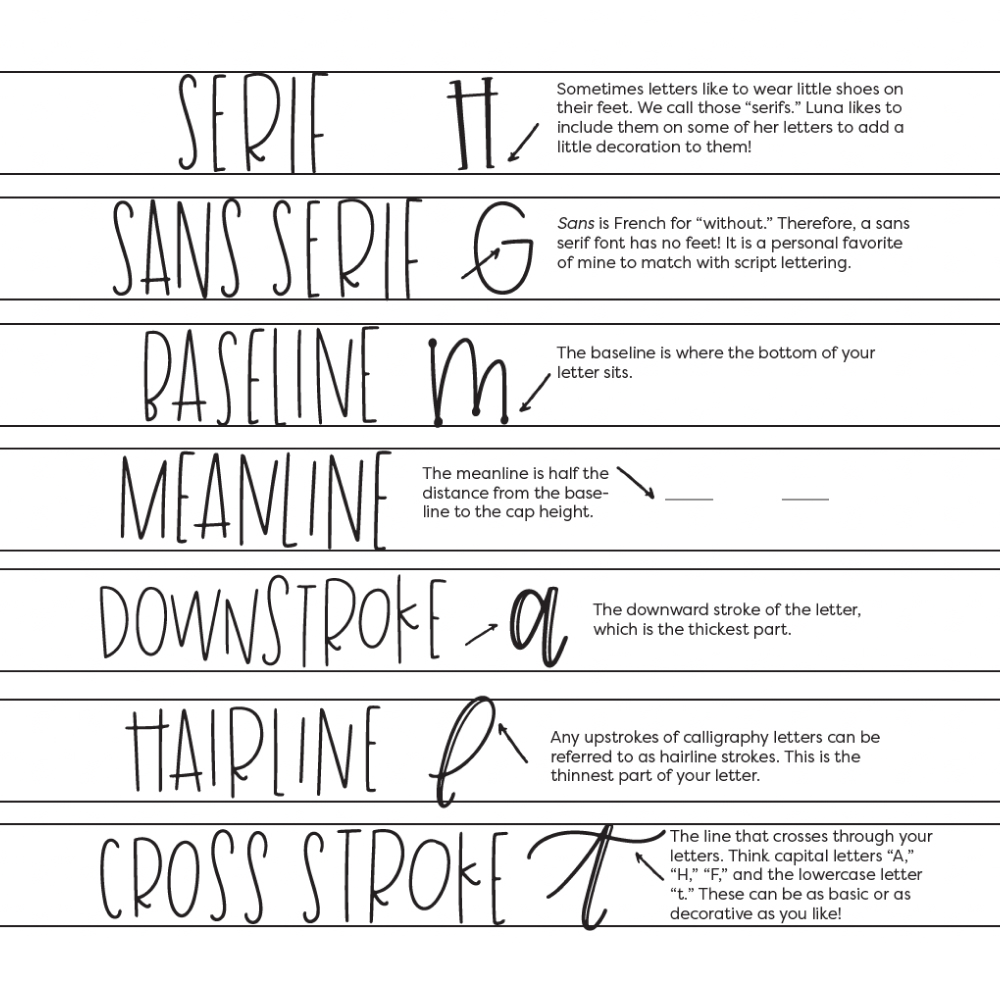 SERIF
H
Sometimes letters like to wear little shoes on
their feet. We call those “serifs.” Luna likes to
include them on some of her letters to add a
little decoration to them!
SANS SERIF
G
Sans is French for “without.” Therefore, a sans
serif font has no feet! It is a personal favorite
of mine to match with script lettering.
BASELINE
m
The baseline is where the bottom of your
letter sits.
MEANLINE
The meanline is half the
distance from the base-
line to the cap height.
DOWNSTROKE
a
The downward stroke of the letter,
which is the thickest part.
HAIRLINE
l
Any upstrokes of calligraphy letters can be
referred to as hairline strokes. This is the
thinnest part of your letter.
CROSS STROKE
t
The line that crosses through your
letters. Think capital letters “A,”
“H,” “F,” and the lowercase letter
“t.” These can be as basic or as
decorative as you like!